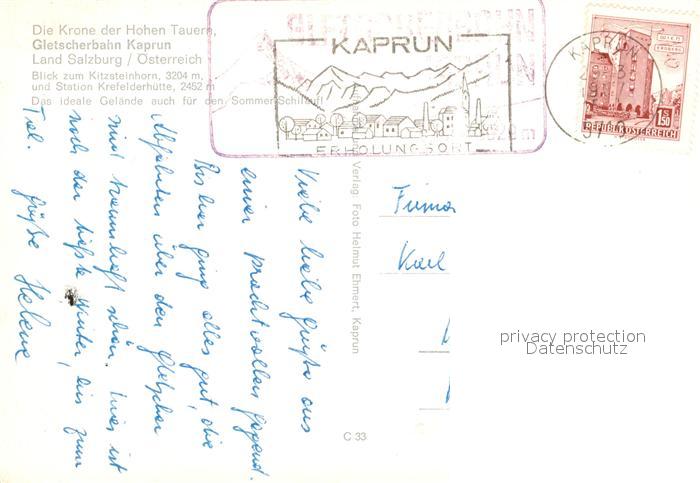 Die Krone der Hohen Tauern,
Gletscherbahn Kaprun
Land Salzburg / Österreich
Blick zum Kitzsteinhorn, 3204 m,
und Station Krefelderhütte, 2452 m
Das ideale Gelände auch für den Sommer-Schilauf
KAPRUN
ERHOLUNGSORT
GLETSCHERBAHN
KAPRUN
REPUBLIK ÖSTERREICH
1.50
Viele liebe Grüße aus
einer prachtvollen Gegend.
Bisher ging alles gut, die
Abfahrten über den Gletscher
sind traumhaft schön. Hier ist
noch der tiefste Winter, bis zum
Tal. Grüße Helene
Verlag Foto Helmut Ehmert, Kaprun
C 33
Firma
Karl
privacy protection
Datenschutz